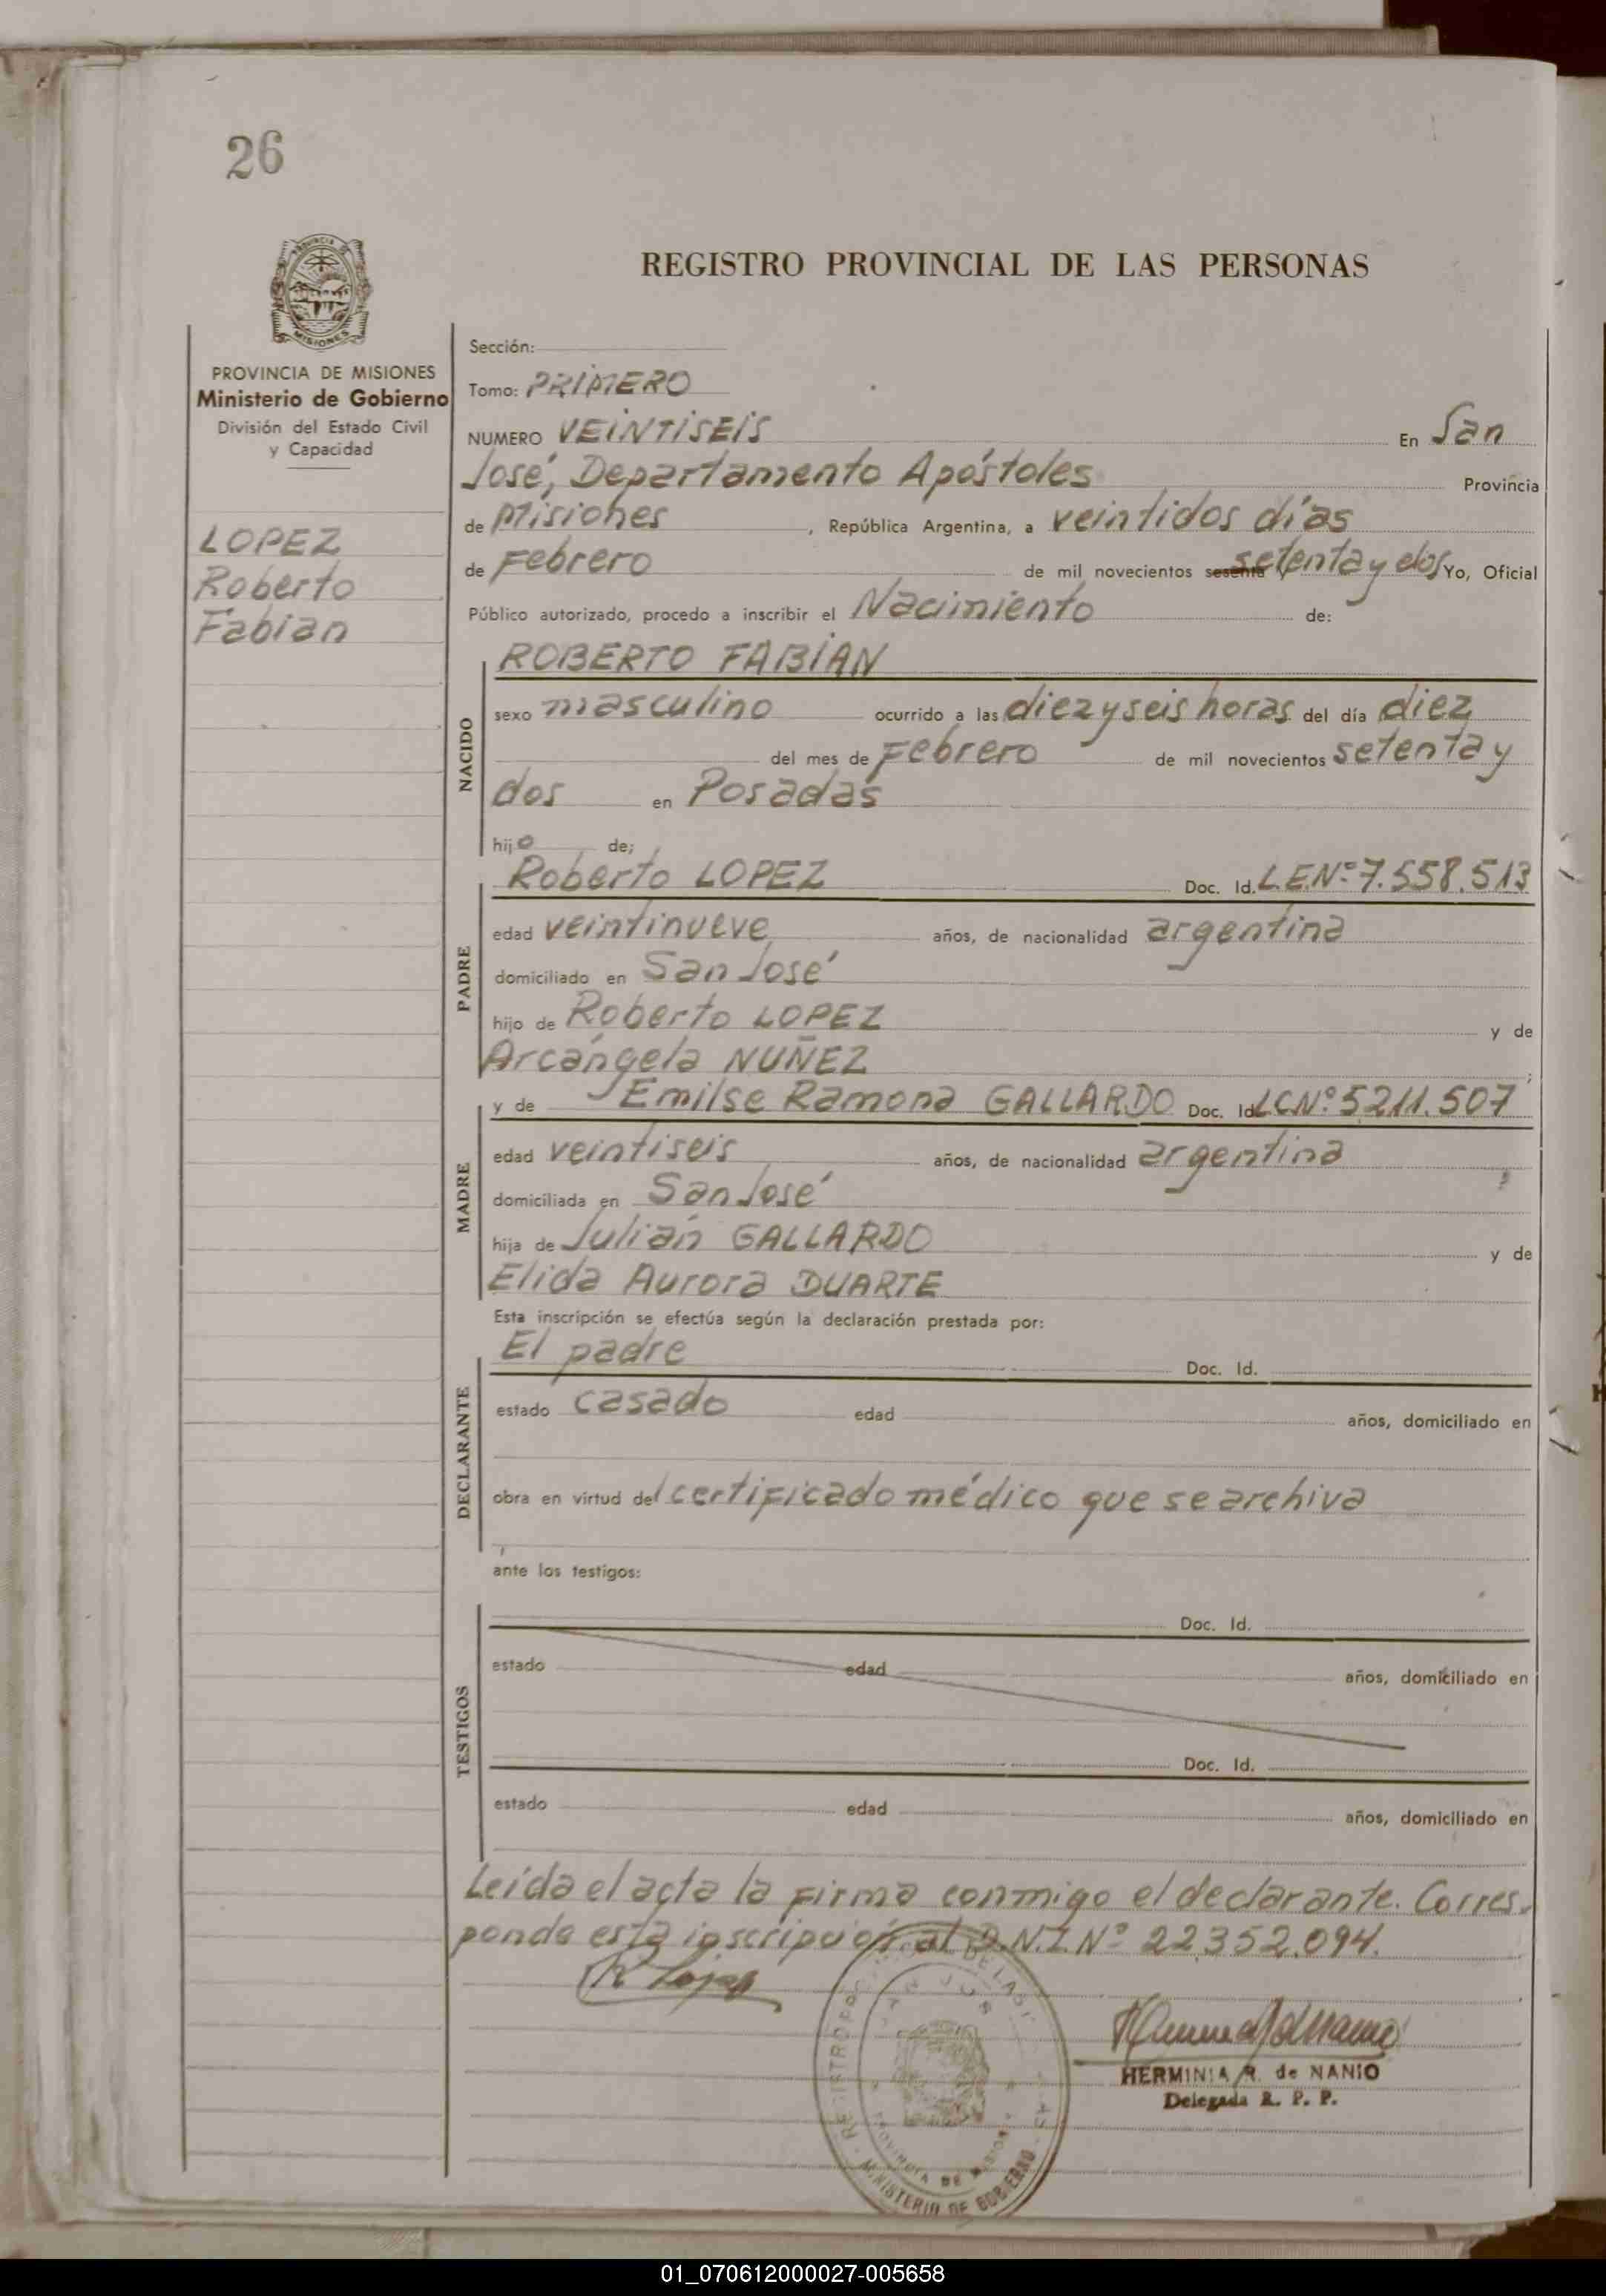 26
REGISTRO PROVINCIAL DE LAS PERSONAS
PROVINCIA DE MISIONES
Ministerio de Gobierno
División del Estado Civil
y Capacidad
LOPEZ
Roberto
Fabian
Sección:
Tomo: PRIMERO
NUMERO VEINTISEIS En San
José, Departamento Apóstoles Provincia
de Misiones, República Argentina, a veintidos días
de Febrero de mil novecientos sesenta setenta y dos Yo, Oficial
Público autorizado, procedo a inscribir el Nacimiento de:
NACIDO
ROBERTO FABIAN
sexo masculino ocurrido a las diez y seis horas del día diez
del mes de Febrero de mil novecientos setenta y
dos en Posadas
hijo de;
PADRE
Roberto LOPEZ Doc. Id. L.E.Nº 7.558.513
edad veintinueve años, de nacionalidad argentina
domiciliado en San José
hijo de Roberto LOPEZ y de
Arcángela NUÑEZ;
MADRE
y de Emilse Ramona GALLARDO Doc. Id L.C.Nº 5.211.507
edad veintiseis años, de nacionalidad argentina
domiciliada en San José
hija de Julián GALLARDO y de
Elida Aurora DUARTE
Esta inscripción se efectúa según la declaración prestada por:
DECLARANTE
El padre Doc. Id.
estado casado edad años, domiciliado en
obra en virtud del certificado médico que se archiva
ante los testigos:
TESTIGOS
Doc. Id.
estado edad años, domiciliado en
Doc. Id.
estado edad años, domiciliado en
Leída el acta la firma conmigo el declarante. Corres-
ponde esta inscripción al D.N.I. Nº 22.352.094.
R Lopez
HERMINIA R. de NANIO
Delegada R. P. P.
MINISTERIO DE GOBIERNO
01_070612000027-005658